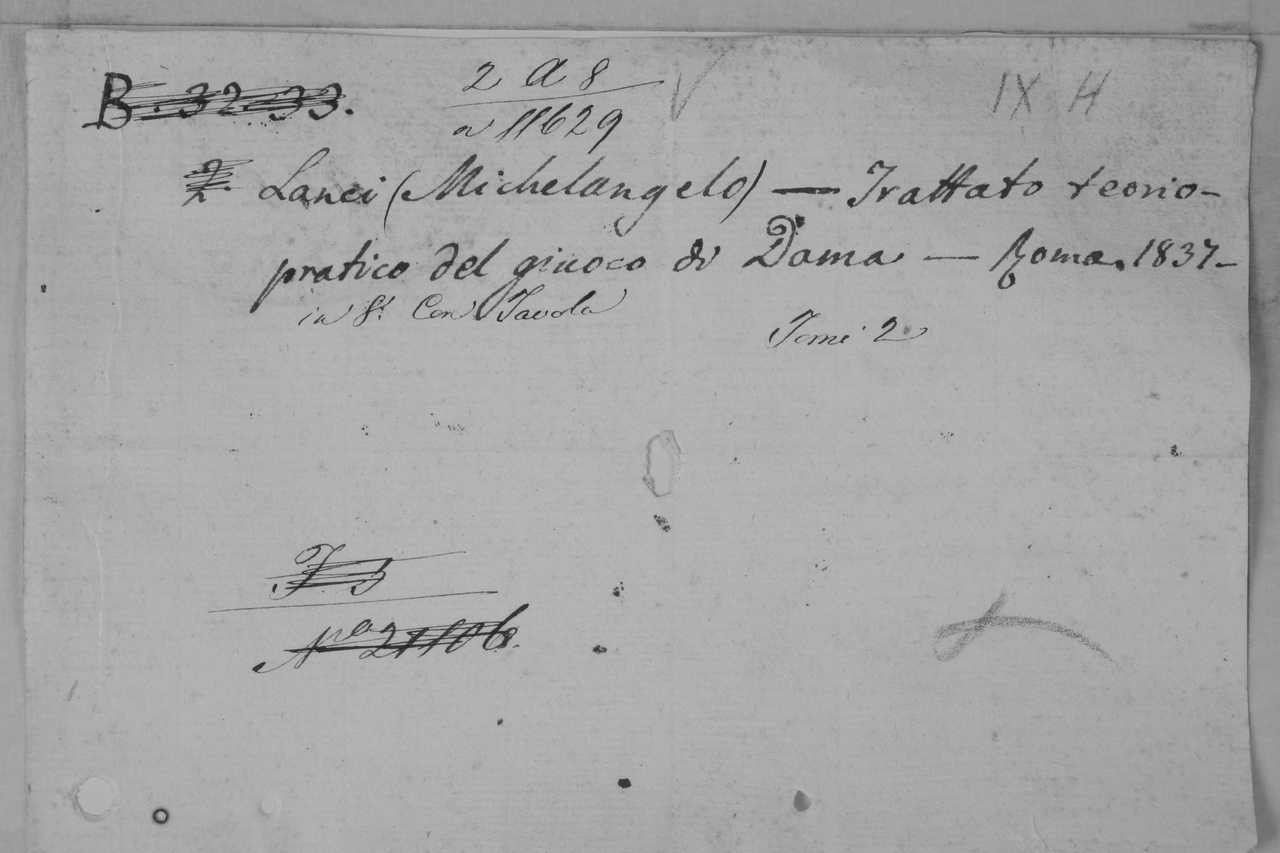 B. 32.33.
2 A 8
a 11629
IX H
2. Lanci (Michelangelo) — Trattato teorio-
pratico del giuoco di Dama — Roma. 1837-
in 8.° Con Tavola
Tomi 2
F 5
N.º 21106.